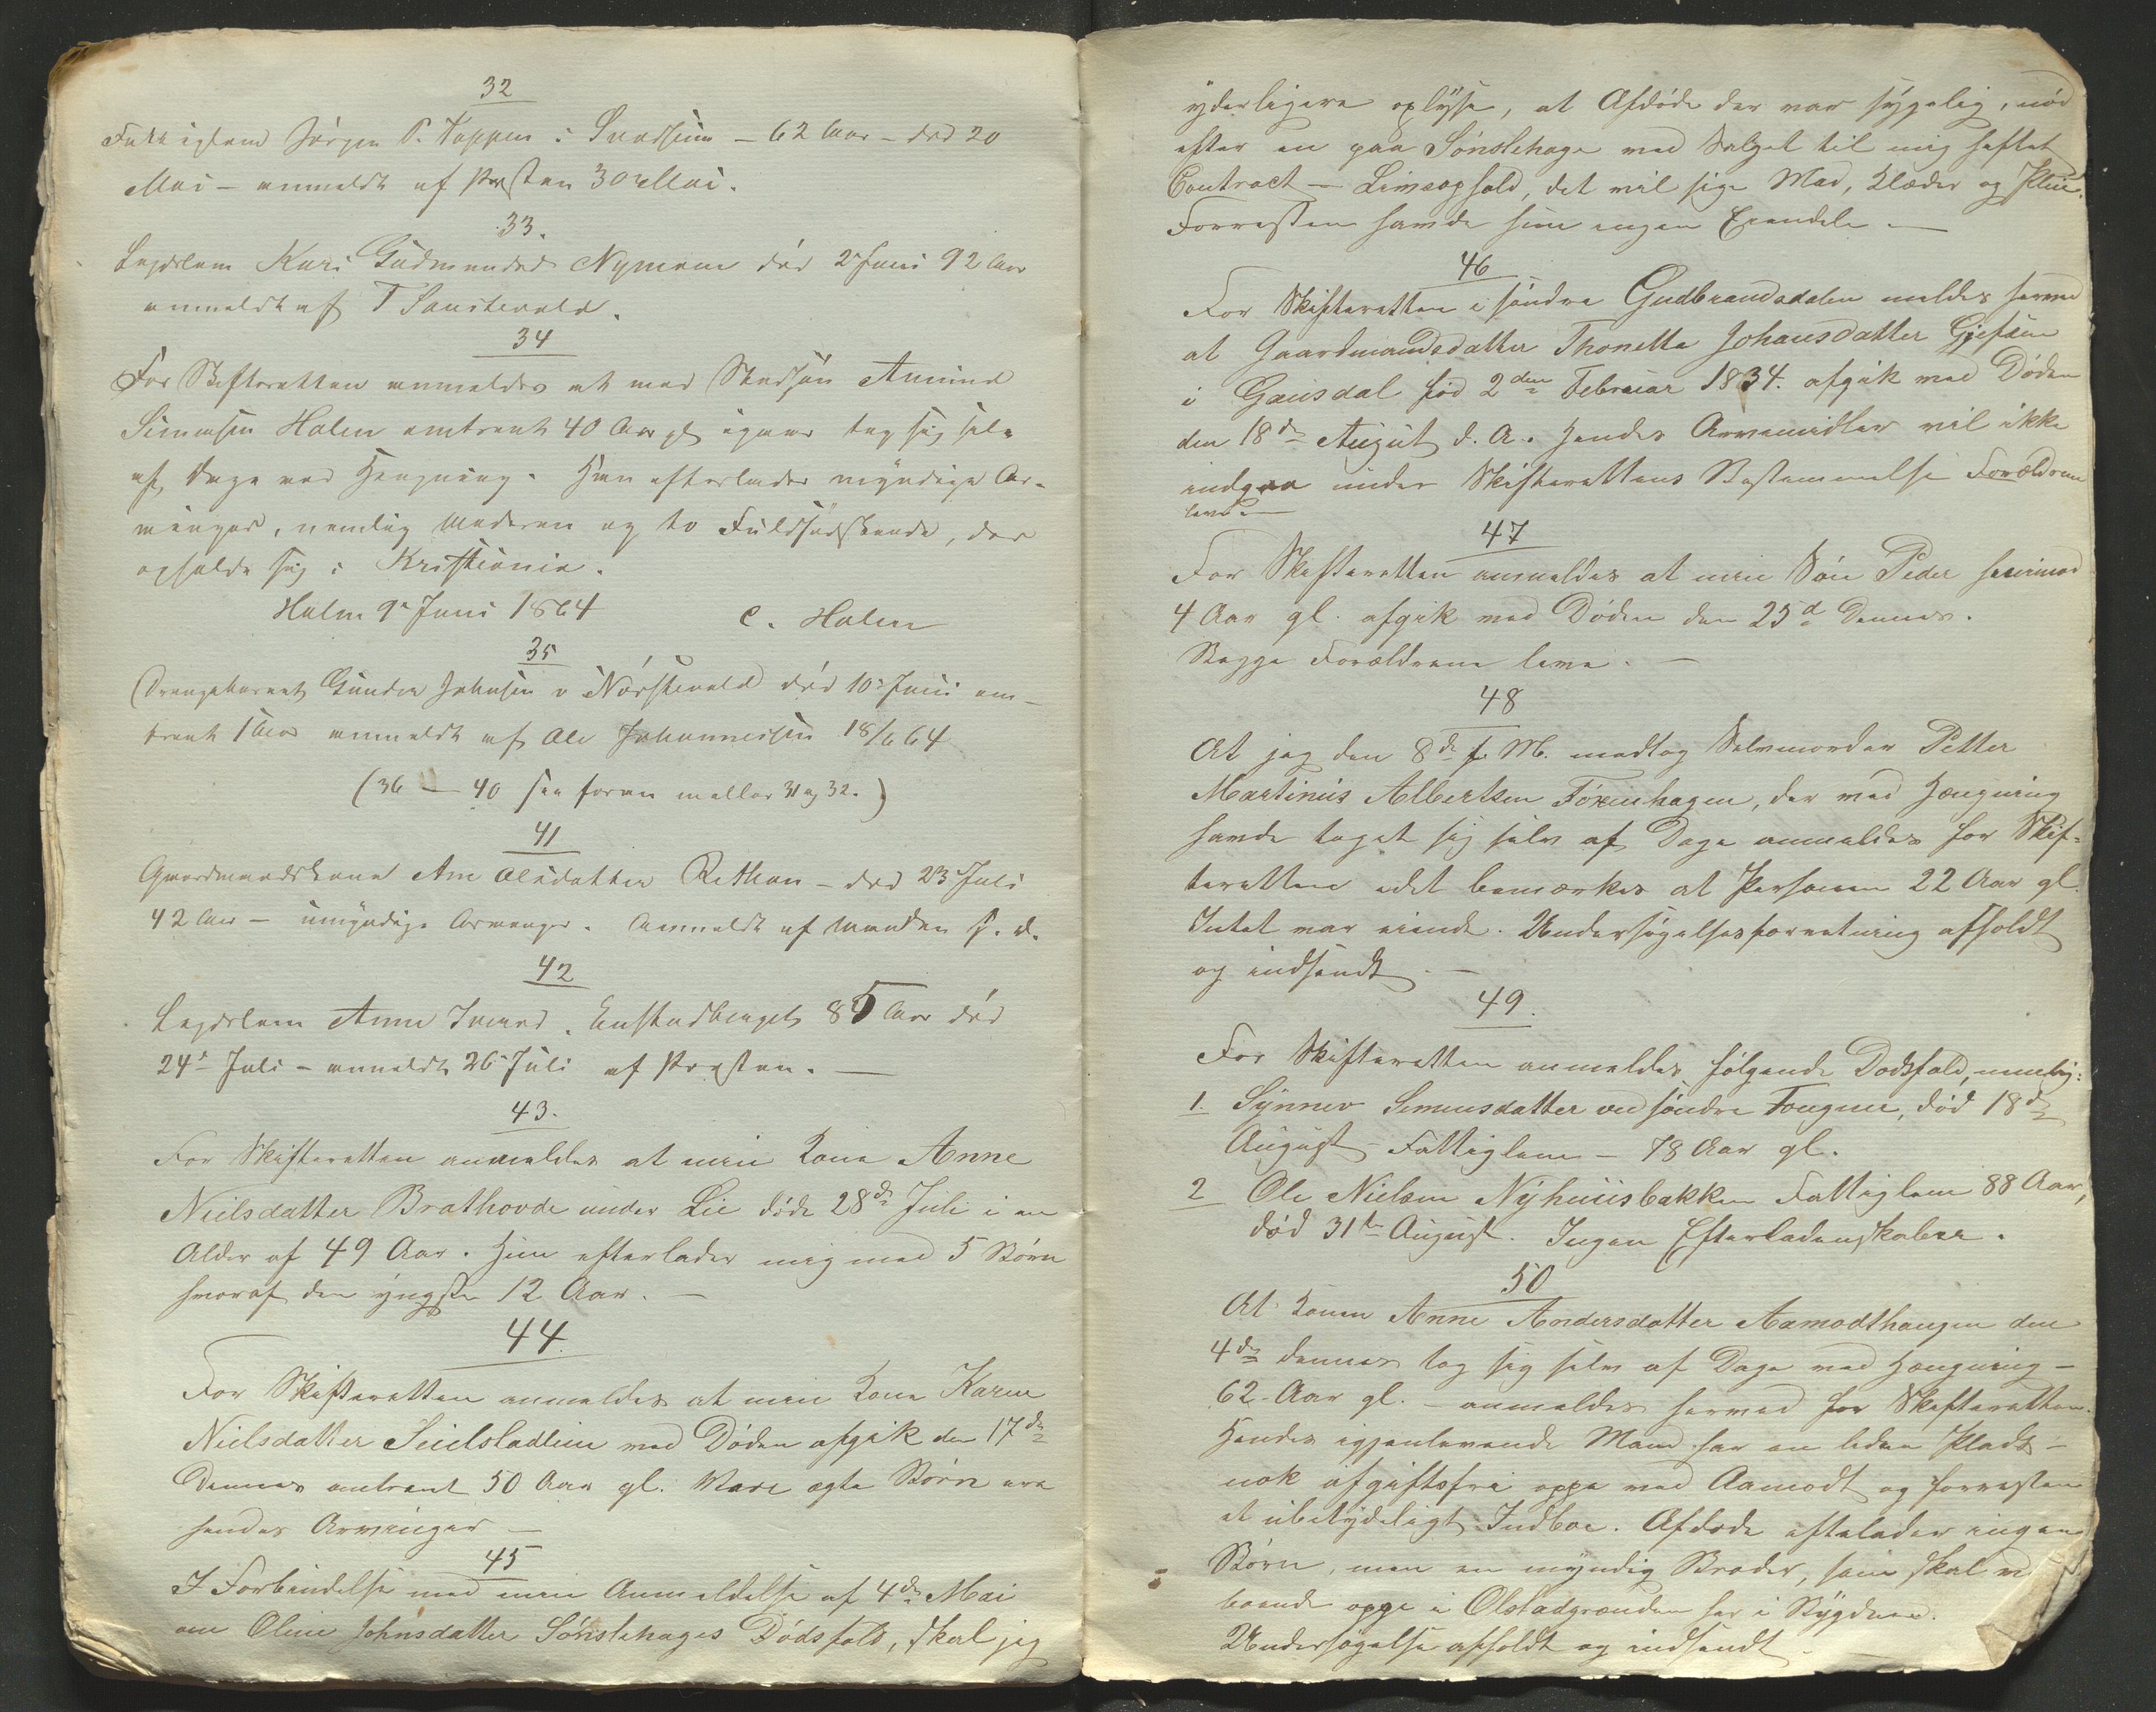 32
Fattiglem Jørgen P. Toppen i Svatsum - 62 Aar - død 20
Mai - anmeldt af Præsten 30te Mai.
33.
Lægdslem Kari Gudmundsd Nymoen død 2 Juni 92 Aar
anmeldt af T
34
For Skifteretten anmeldes at min Stedsøn Amund
Simensen Holm omtrent 40 Aar gl igaar tog sig selv
af Dage ved Hængning. Han efterlader myndige Ar-
vinger, nemlig Moderen og to Fuldsødskende, der
opholde sig i Kristiania.
Holm 9 Juni 1864 C. Holm
35
Drengebarnet Gunder Johnsen v Nørstevold død 10 Juni om-
trent 1 Aar anmeldt af Ole Johannessen 18/6 64
(36 - 40 see foran mellem 31 og 32.)
41
Gaardmandskone Ane Olsdatter - død 23 Juli
42 Aar - umyndige Arvinger. Anmeldt af Manden s. d.
42
Lægdslem Anne Iversd. 85 Aar død
24 Juli - anmeldt 26 Juli af Præsten. -
43.
For Skifteretten anmeldes at min Kone Anne
Nielsdatter Brathovde under Lie døde 28de Juli i en
Alder af 49 Aar. Hun efterlader mig med 5 Børn
hvoraf den yngste 12 Aar. -
44.
For Skifteretten anmeldes at min Kone Karen
Nielsdatter ved Døden afgik den 17de
Dennes omtrent 50 Aar gl. Vore ægte Børn ere
hendes Arvinger -
45
I Forbindelse med min Anmeldelse af 4de Mai
om Oline Johnsdatter Sønstehages Dødsfald, skal jeg
yderligere oplyse, at Afdøde der var sygelig, nød
efter en paa Sønstehage ved Salget til mig heftet
Contract - Livsophold, det vil sige Mad, Klæder og Pleie.
Forresten havde hun ingen Eiendele -
46
For Skifteretten i søndre Gudbrandsdalen meldes herved
at Gaardmandsdatter Thonette Johansdatter
i Gausdal født 2den Februar 1834. afgik ved Døden
den 18de August d. A. Hendes Arvemidler vil ikke
indgaa under Skifterettens Bestemmelse Forældrene
leve. -
47
For Skifteretten anmeldes at min Søn Peder henimod
4 Aar gl. afgik ved Døden den 25d Dennes.
Begge Forældrene leve. -
48
At jeg den 8de f. M. modtog Selvmorder Petter
Martinus Albertsen, der ved Hængning
havde taget sig selv af Dage anmeldes for Skif-
teretten idet bemærkes at Personen 22 Aar gl.
Intet var eiende. Undersøgelsesforretning afholdt
og indsendt. -
49.
For Skifteretten anmeldes følgende Dødsfald, nemlig:
1. Synnev Simensdatter ved søndre Fougner, død 18de
August - Fattiglem - 78 Aar gl.
2 Ole Nielsen Nyhuusbakken Fattiglem 88 Aar,
død 31te August. Ingen Efterladenskaber.
50
At Konen Anne Andersdatter Aamodthaugen den
4de dennes tog sig selv af Dage ved Hængning -
62 Aar gl. - anmeldes herved for Skifteretten.
Hendes igjenlevende Mand har en liden Plads -
nok afgiftsfri oppe ved Aamodt og forresten
et ubetydeligt Indboe. Afdøde efterlader ingen
Børn, men en myndig Broder, som skal v
boende oppe i Olstadgrenden her i Bygden.
Undersøgelse afholdt og indsendt -